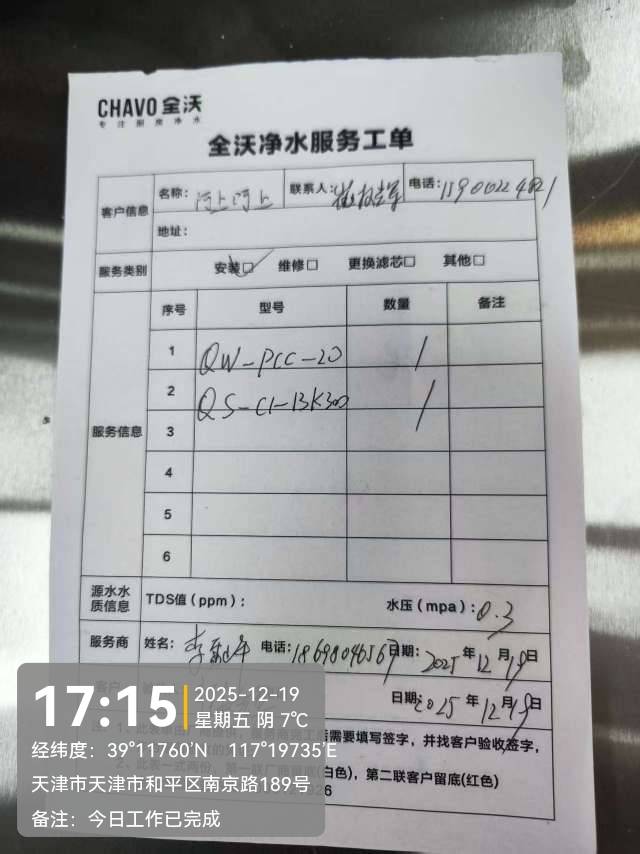 CHAVO 全沃
专注厨房净水
全沃净水服务工单
客户信息 名称: 河上河上 联系人: 电话:
地址:
服务类别 安装☑ 维修□ 更换滤芯□ 其他□
服务信息 序号 型号 数量 备注
1 QW-PCC-20 1
2 QS-C1-BK300 1
3
4
5
6
源水水质信息 TDS值(ppm): 水压(mpa):0.3
服务商 姓名: 电话: 日期: 2025年12月19日
日期: 2025年12月19日
需要填写签字,并找客户验收签字,
(白色), 第二联客户留底(红色)
17:15 2025-12-19
星期五 阴 7℃
经纬度: 39°11760′N 117°19735′E
天津市天津市和平区南京路189号
备注: 今日工作已完成